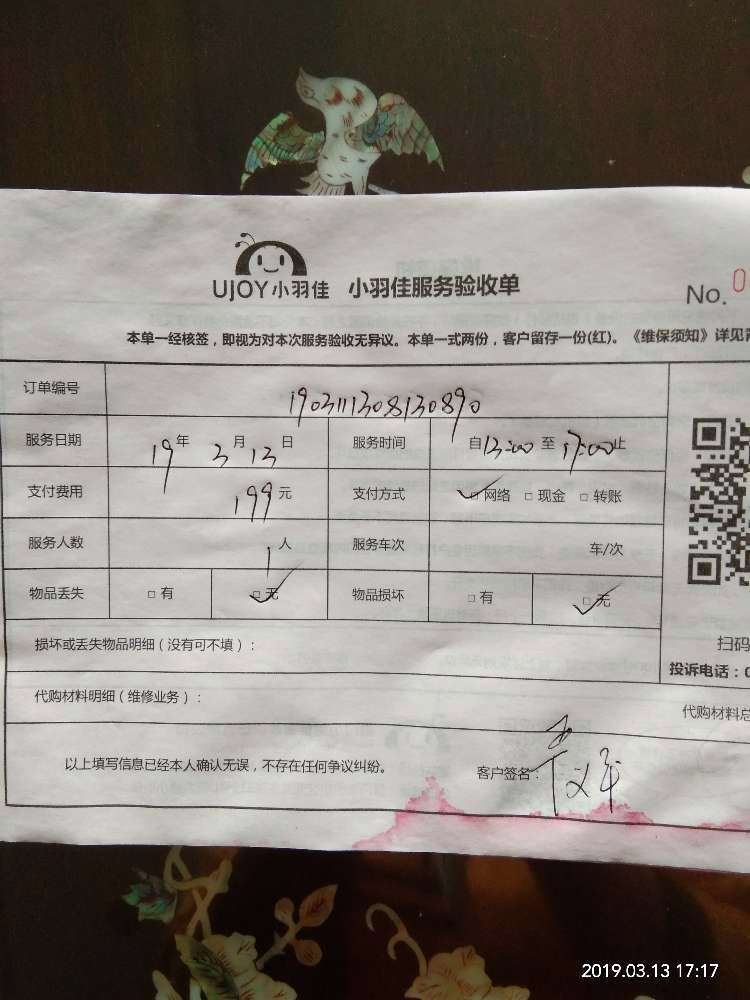 UJOY小羽佳 小羽佳服务验收单
No. 0
本单一经核签，即视为对本次服务验收无异议。本单一式两份，客户留存一份(红)。《维保须知》详见背
订单编号 190311308130890
服务日期 19年3月13日 服务时间 自13:00至17:00止
支付费用 199元 支付方式 ☑网络 □现金 □转账
服务人数 1人 服务车次 车/次
物品丢失 □有 ☑无 物品损坏 □有 ☑无
损坏或丢失物品明细（没有可不填）：
扫码
投诉电话：0
代购材料明细（维修业务）：
代购材料总
以上填写信息已经本人确认无误，不存在任何争议纠纷。 客户签名：
2019.03.13 17:17